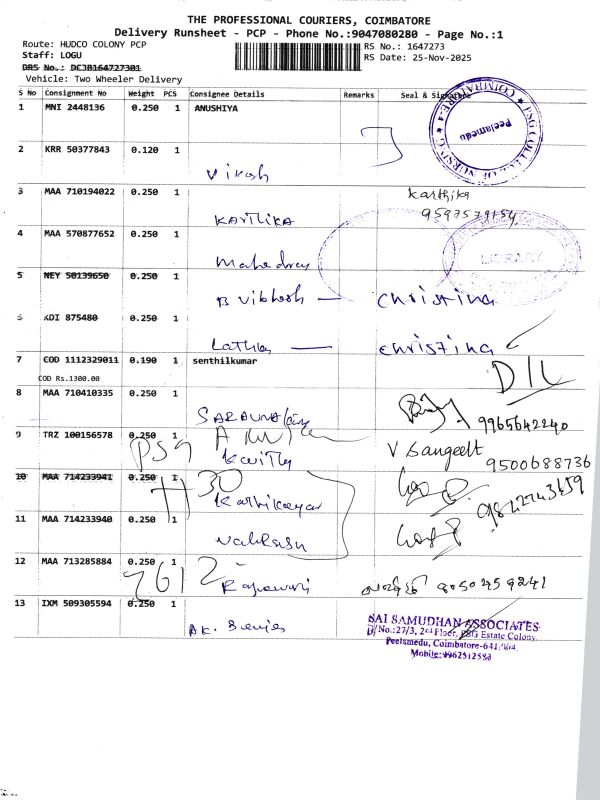 THE PROFESSIONAL COURIERS, COIMBATORE
Delivery Runsheet - PCP - Phone No.:9047080280 - Page No.:1
Route: HUDCO COLONY PCP
RS No.: 1647273
Staff: LOGU
RS Date: 25-Nov-2025
DRS No.: DCJB164727301
Vehicle: Two Wheeler Delivery
S No Consignment No Weight PCS Consignee Details Remarks Seal & Signature
1 MNI 2448136 0.250 1 ANUSHIYA
PSG COLLEGE OF NURSING
COIMBATORE-4
Peelamedu
2 KRR 50377843 0.120 1
3 MAA 710194022 0.250 1 Karthika
KARTHIKA
4 MAA 570877652 0.250 1
LIBRARY
5 NEY 50139650 0.250 1
B Vibhesh — Christina
6 KDI 875480 0.250 1
Latha — Christina
7 COD 1112329011 0.190 1 senthilkumar
COD Rs.1300.00
8 MAA 710410335 0.250 1
9965642240
9 TRZ 100156578 0.250 1
PSG
V Sangeet
9500688736
10 MAA 714233941 0.250 1
H30
11 MAA 714233940 0.250 1
12 MAA 713285884 0.250 1
2612
13 IXM 509305594 0.250 1
SAI SAMUDHAN ASSOCIATES
D/No.:27/3, 2nd Floor, PSG Estate Colony
Peelamedu, Coimbatore-641 004